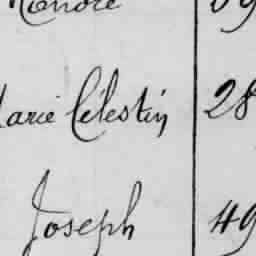 Honoré 69
Marie Célestin 28
Joseph 49